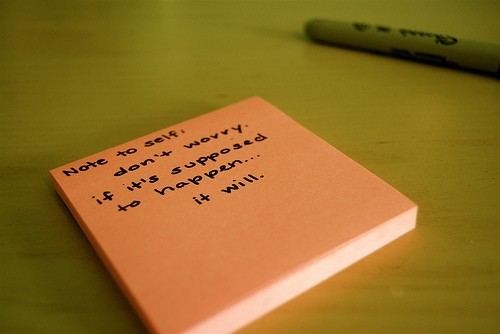 Note to self,
don't worry.
if it's supposed
to happen...
it will.